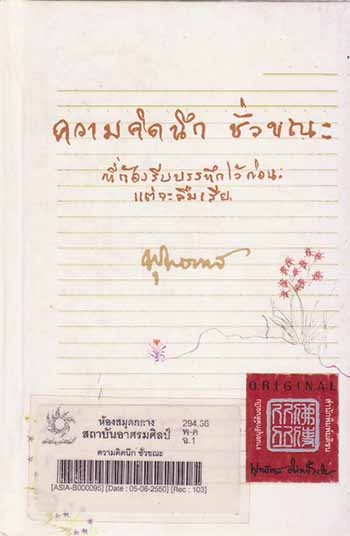 ความคิดนึก ชั่วขณะ
ที่ต้องรีบบรรทึกไว้ก่อน
แต่จะลืมเสีย.
พุทธทาส
ห้องสมุดกลาง
สถาบันอาศรมศิลป์
294.36
พ-ค
ฉ.1
ความคิดนึก ชั่วขณะ
[ASIA-B000095] [Date : 05-06-2550] [Rec : 103]
ORIGINAL